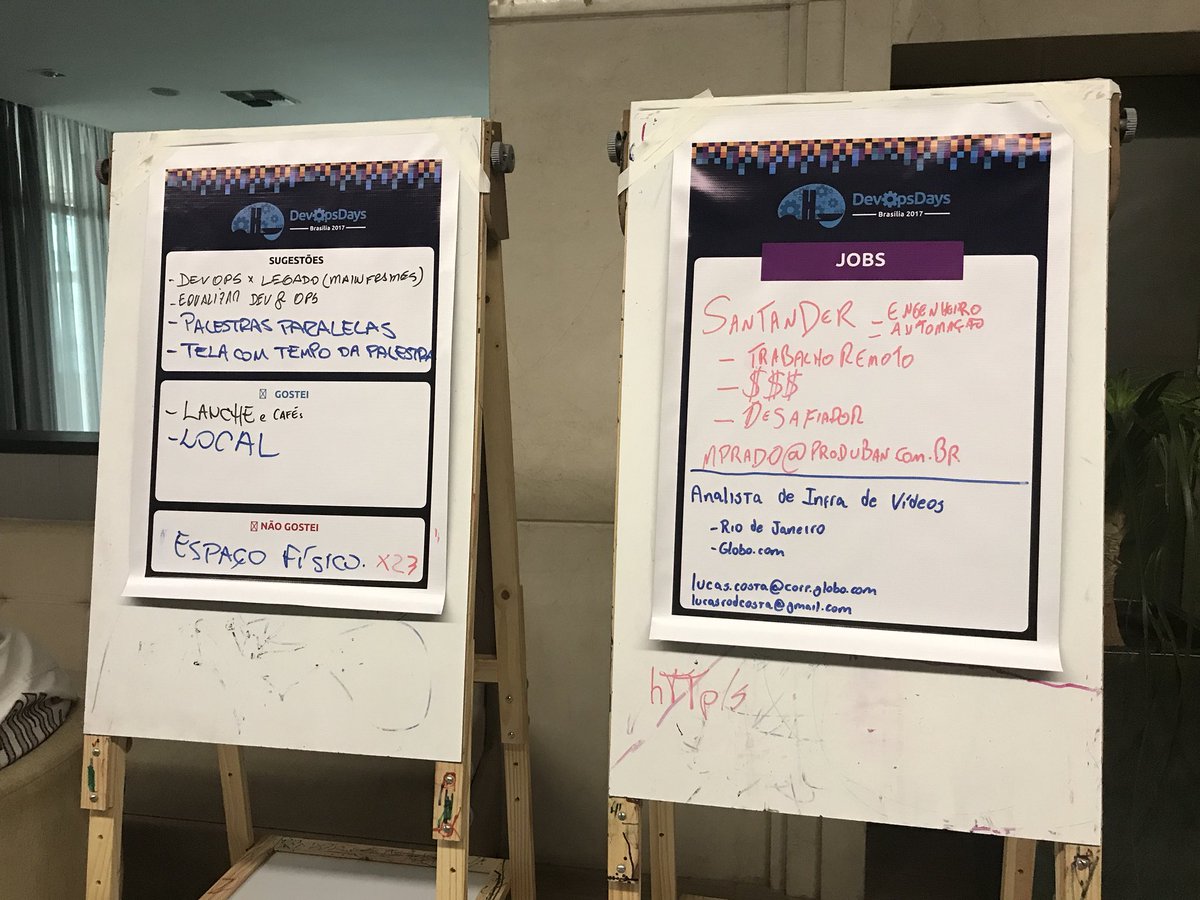 DevOpsDays
Brasília 2017
SUGESTÕES
- DEVOPS x LEGADO (MAINFRAMES)
- EQUALIZAR DEV & OPS
- PALESTRAS PARALELAS
- TELA COM TEMPO DA PALESTRA
GOSTEI
- LANCHE e CAFÉs
- LOCAL
NÃO GOSTEI
ESPAÇO FÍSICO. x23
DevOpsDays
Brasília 2017
JOBS
SANTANDER - ENGENHEIRO
- AUTOMAÇÃO
- TRABALHO REMOTO
- $$$
- DESAFIADOR
MPRADO@PRODUBAN.COM.BR
Analista de Infra de Vídeos
- Rio de Janeiro
- Globo.com
lucas.costa@corp.globo.com
lucasrodcosta@gmail.com
http/s